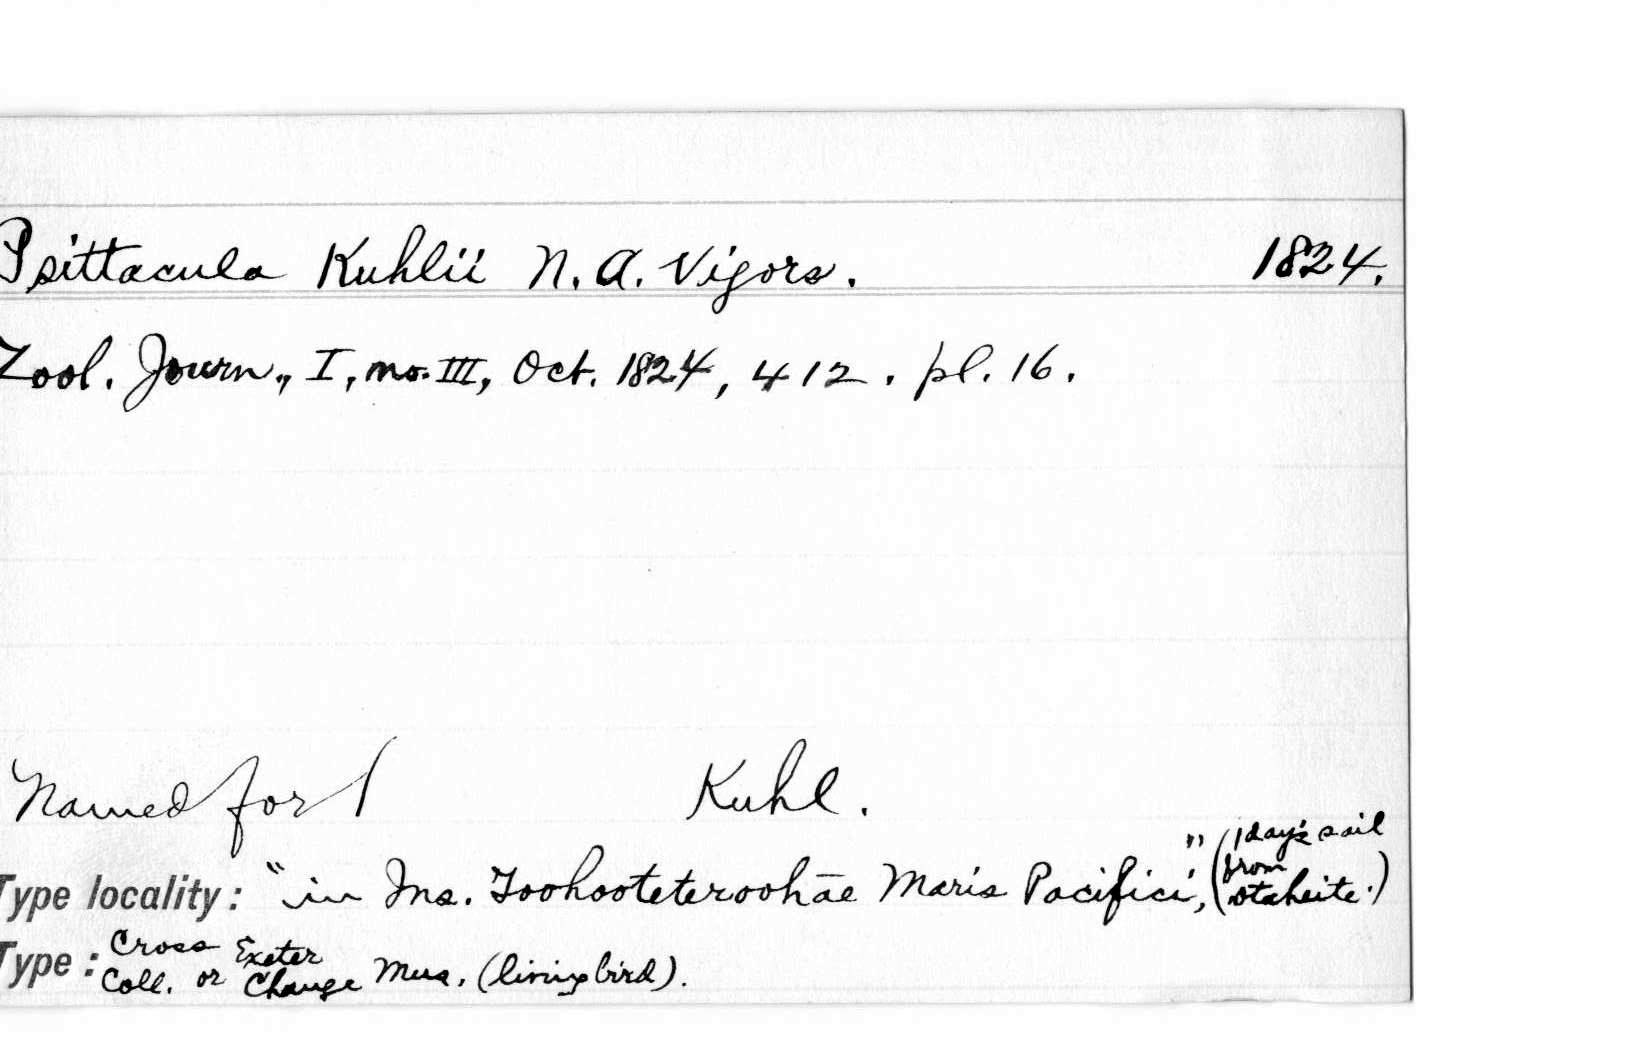 Psittacula Kuhlii N. A. Vigors. 1824.
Zool. Journ., I, no. III, Oct. 1824, 412. pl. 16.
Named for Kuhl.
Type locality: "in Ins. Toohooteteroohāe Maris Pacifici", (1 day's sail from Otaheite.)
Type: Cross Coll. or Exeter Change Mus. (living bird).